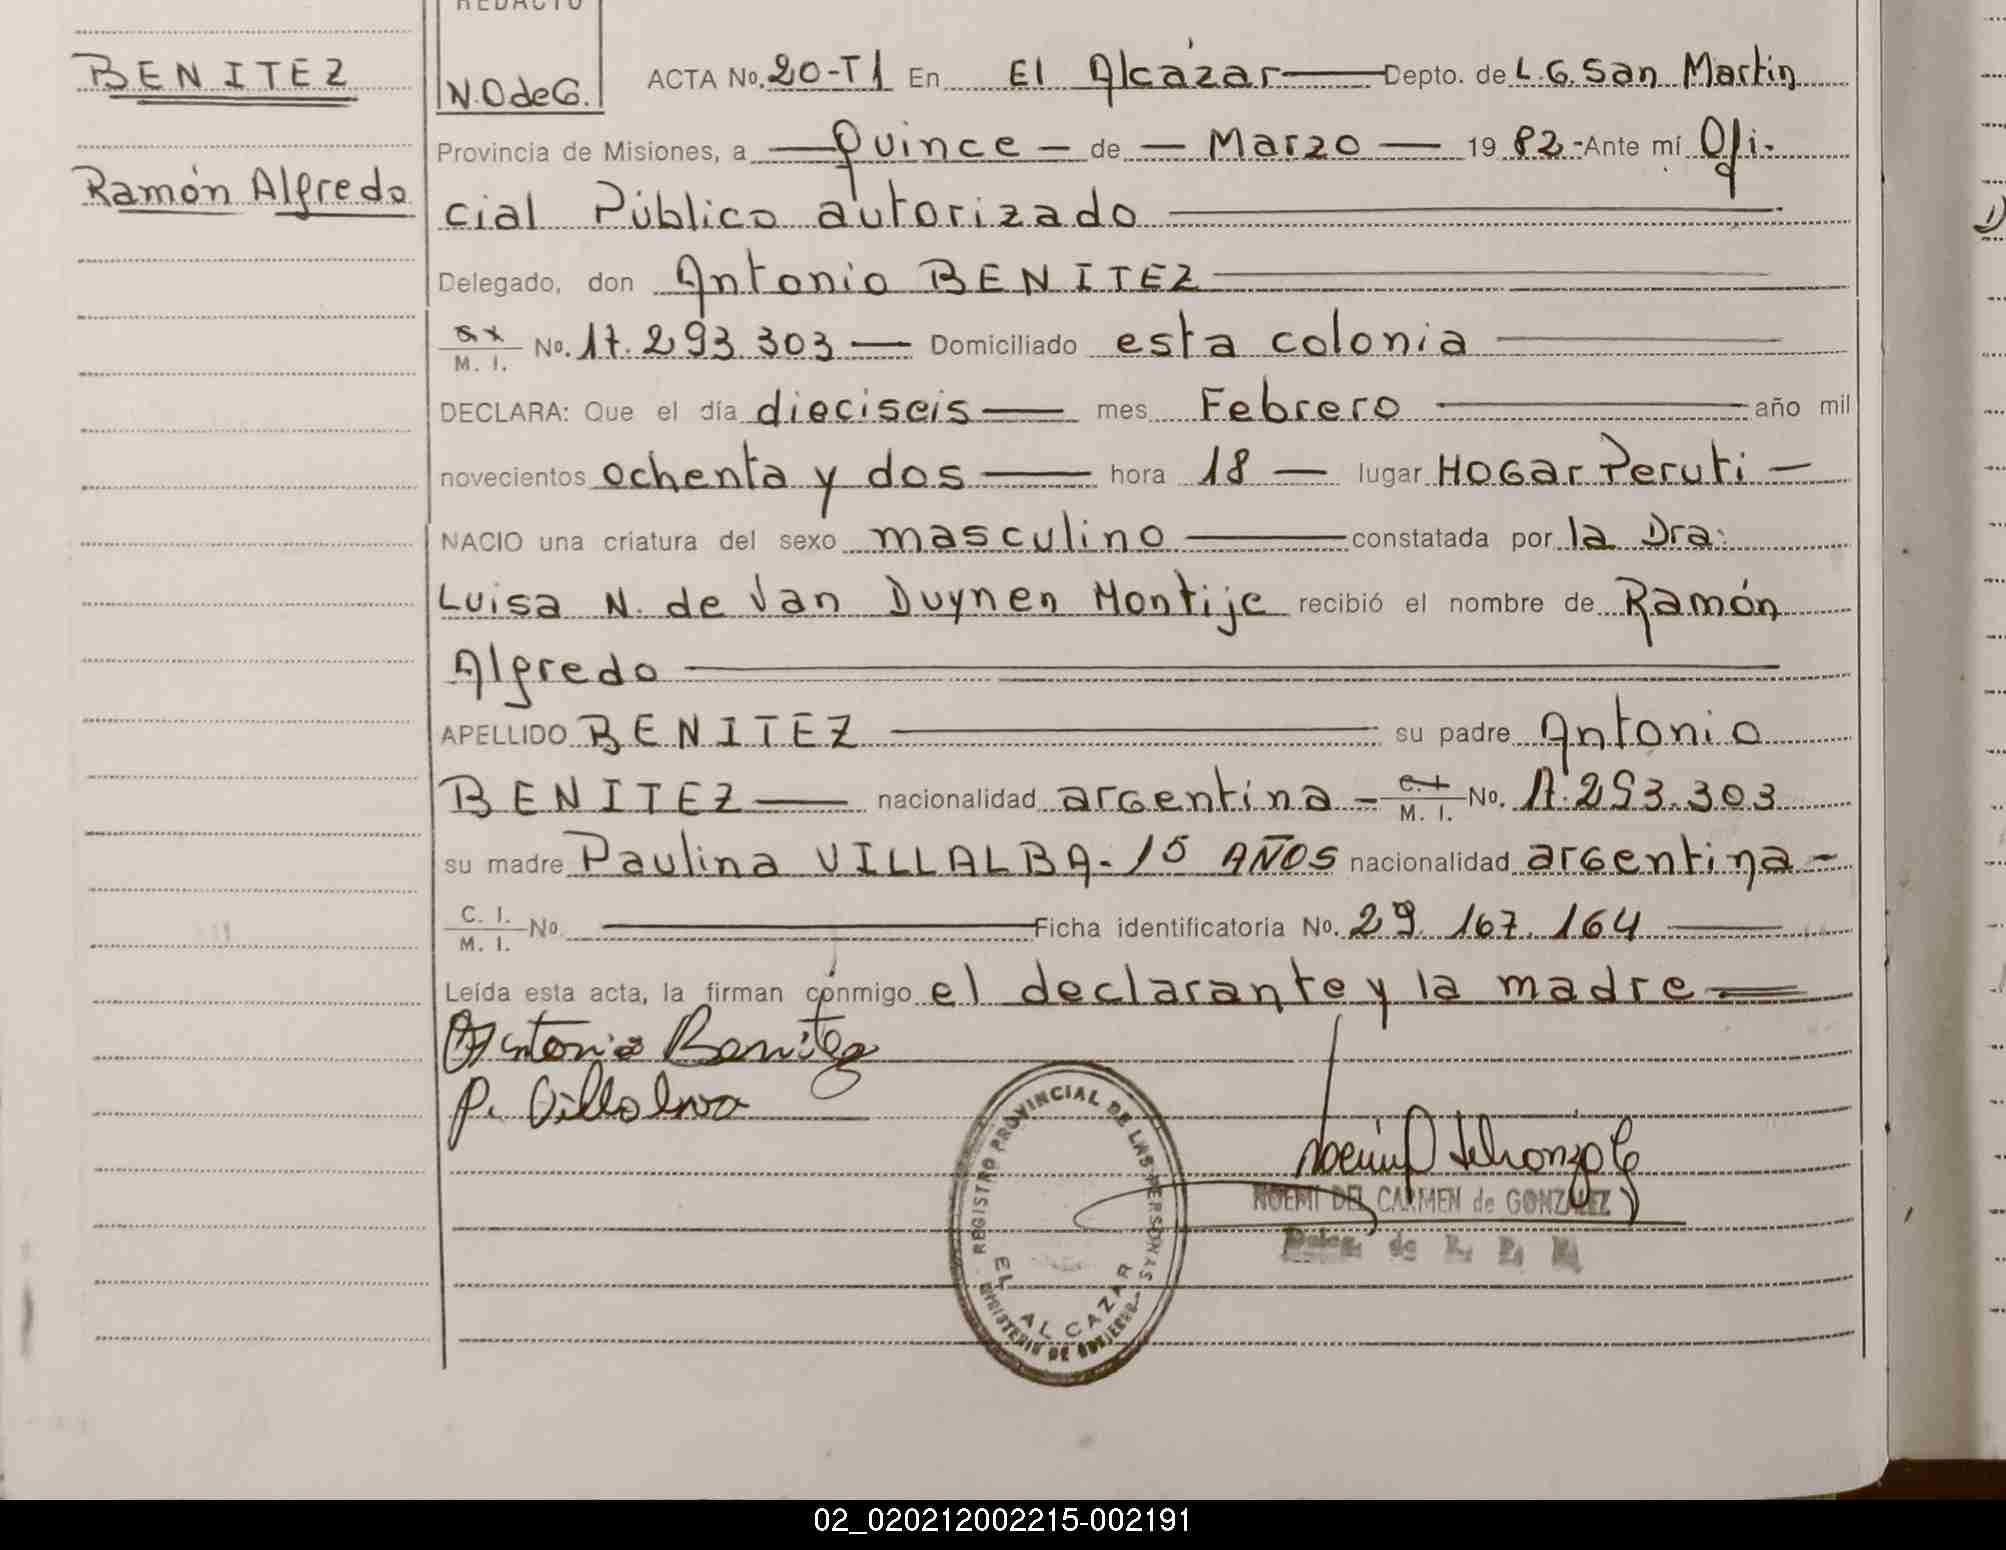 REDACTO
N.O de G.
BENITEZ
Ramón Alfredo
ACTA No. 20-T1 En El Alcázar Depto. de L.G. San Martin
Provincia de Misiones, a Quince de Marzo 1982.- Ante mí Ofi-
cial Público autorizado
Delegado, don Antonio BENITEZ
M. I. No. 17.293.303 Domiciliado esta colonia
DECLARA: Que el día dieciseis mes Febrero año mil
novecientos ochenta y dos hora 18 lugar HOGar Peruti
NACIO una criatura del sexo masculino constatada por la Dra:
Luisa N. de Van Duynen Montije recibió el nombre de Ramón
Alfredo
APELLIDO BENITEZ su padre Antonio
BENITEZ nacionalidad argentina - M. I. No. 17.293.303
su madre Paulina VILLALBA - 15 AÑOS nacionalidad argentina -
C. I. M. I. No. Ficha identificatoria No. 29.167.164
Leída esta acta, la firman conmigo el declarante y la madre
Antonio Benitez
P. Villalva
REGISTRO PROVINCIAL DE LAS PERSONAS
EL ALCAZAR
MINISTERIO DE GOBIERNO
NOEMI DEL CARMEN de GONZALEZ
Deleg. de R. P. P.
02_020212002215-002191